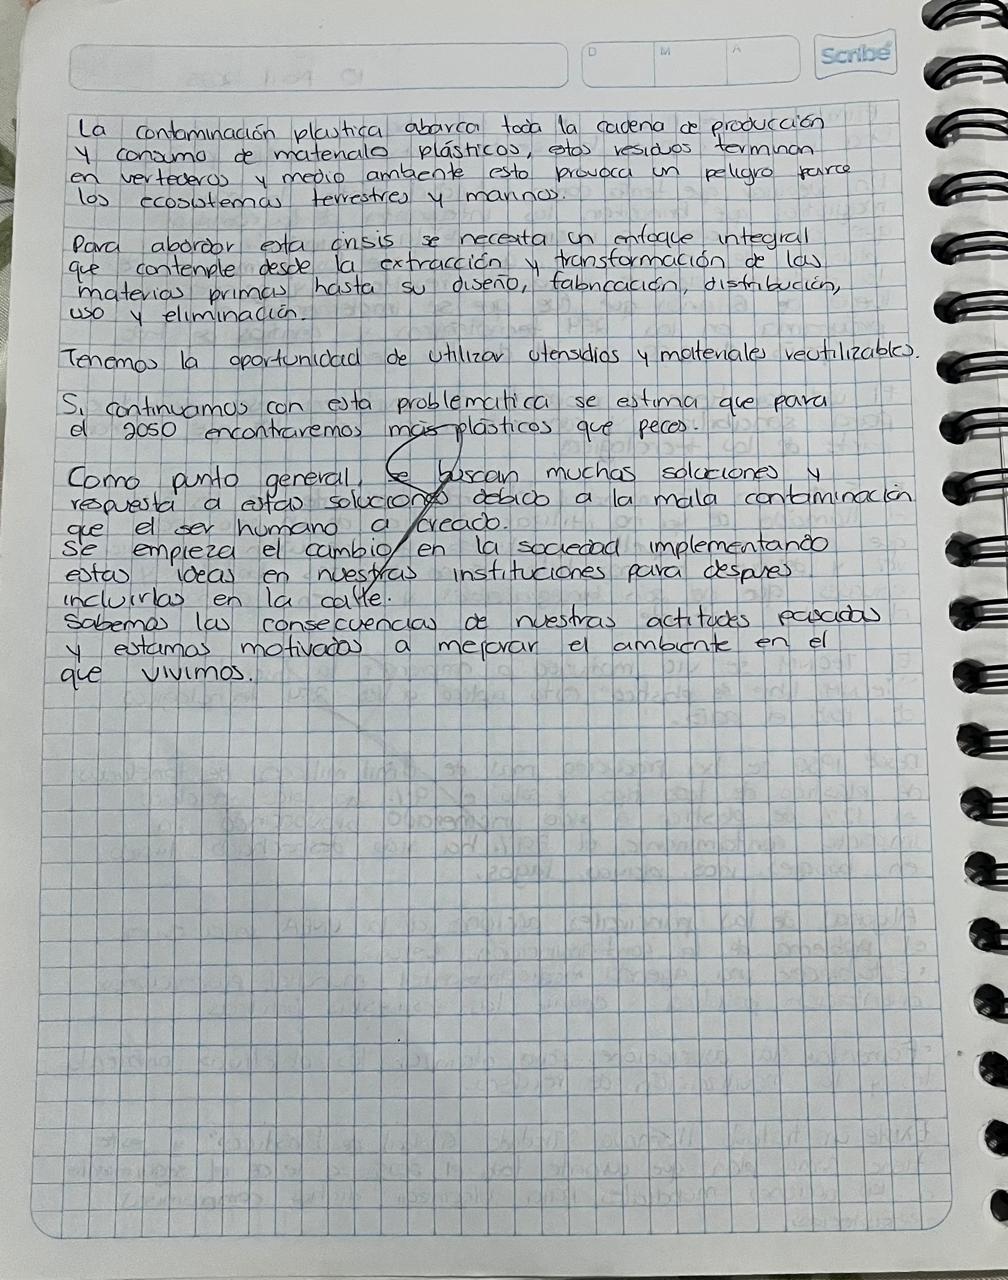 D M A Scribe
La contaminación plastica abarca toda la cadena de producción
y consumo de materiale plásticos, estos residuos terminan
en vertederos y medio ambiente esto provoca un peligro
los ecosistemas terrestres y marinos.
Para abordar esta crisis se necesita un enfoque integral
que contemple desde la extracción y transformación de las
materias primas hasta su diseño, fabricación, distribución,
uso y eliminación.
Tenemos la oportunidad de utilizar utensidios y materiales reutilizables.
Si continuamos con esta problematica se estima que para
el 2050 encontraremos más plásticos que peces.
Como punto general, se buscan muchas soluciones y
respuesta a estas soluciones debido a la mala contaminación
que el ser humano a creado.
Se empieza el cambio en la sociedad implementando
estas ideas en nuestras instituciones para despues
incluirlas en la calle.
Sabemos las consecuencias de nuestras actitudes pasadas
y estamos motivados a mejorar el ambiente en el
que vivimos.